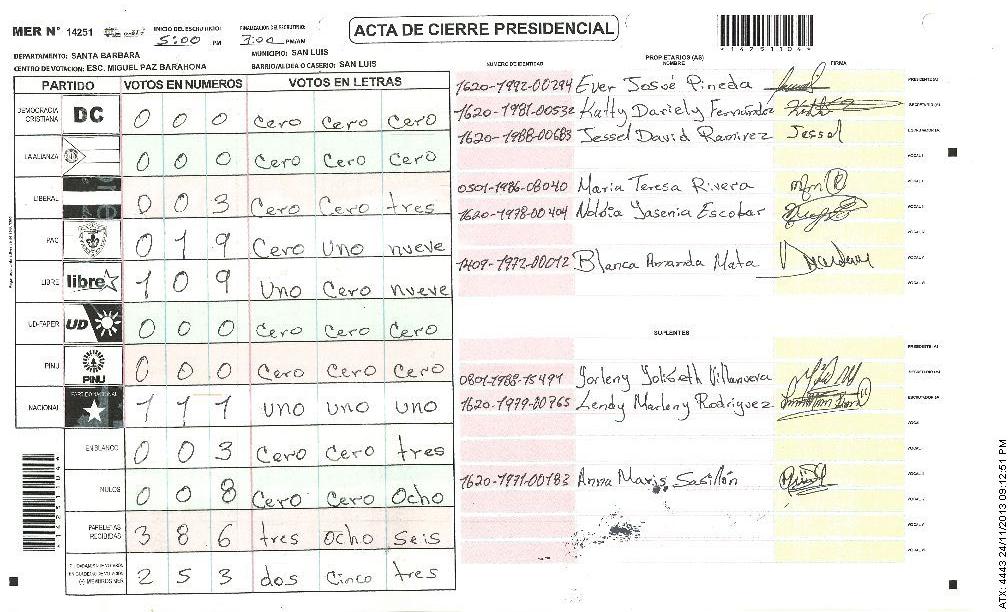 MER N° 14251
INICIO DEL ESCRUTINIO: 5:00 PM
FINALIZACION DEL ESCRUTINIO: 7:00 PM/AM
ACTA DE CIERRE PRESIDENCIAL
DEPARTAMENTO: SANTA BARBARA
MUNICIPIO: SAN LUIS
CENTRO DE VOTACION: ESC. MIGUEL PAZ BARAHONA
BARRIO/ALDEA O CASERIO: SAN LUIS
PARTIDO VOTOS EN NUMEROS VOTOS EN LETRAS
DEMOCRACIA CRISTIANA DC 0 0 0 Cero Cero Cero
LA ALIANZA 0 0 0 Cero Cero Cero
LIBERAL 0 0 3 Cero Cero tres
PAC 0 1 9 Cero Uno nueve
LIBRE libre 1 0 9 Uno Cero nueve
UD-FAPER UD 0 0 0 Cero Cero Cero
PINU PINU 0 0 0 Cero Cero Cero
NACIONAL 1 1 1 uno uno uno
EN BLANCO 0 0 3 Cero Cero tres
NULOS 0 0 8 Cero Cero Ocho
PAPELETAS RECIBIDAS 3 8 6 tres Ocho Seis
2 5 3 dos Cinco tres
PROPIETARIOS (AS)
NUMERO DE IDENTIDAD NOMBRE FIRMA
1620-1992-00294 Ever Josué Pineda PRESIDENTE(A)
1620-1981-00532 Katty Dariely Fernández SECRETARIO (A)
1620-1988-00683 Jessel David Ramirez Jessel
0501-1986-08040 Maria Teresa Rivera
1620-1978-00404 Noldia Yasenia Escobar
1409-1972-00012 Blanca Armanda Mata
SUPLENTES
PRESIDENTE (A)
0801-1988-15497 Yorleny Yolibeth Villanueva SECRETARIO (A)
1620-1979-00765 Lendy Marleny Rodriguez ESCRUTADOR (A)
1620-1971-00183 Anna Maris Sasillón
ATX: 4443 24/11/2013 09:12:51 PM